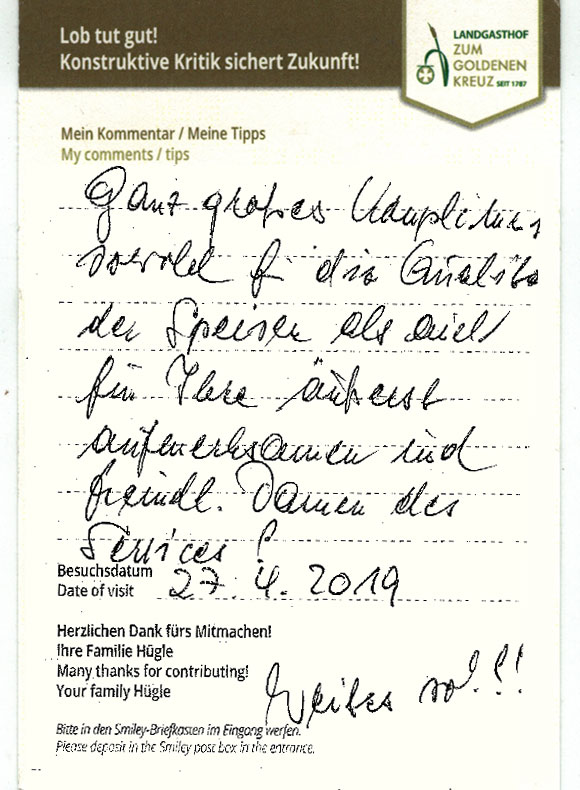 Lob tut gut!
Konstruktive Kritik sichert Zukunft!
LANDGASTHOF
ZUM
GOLDENEN
KREUZ SEIT 1787
Mein Kommentar / Meine Tipps
My comments / tips
Ganz großes Kompliment
sowohl f die Qualität
der Speisen als auch
für Ihre äußerst
aufmerksamen und
freundl. Damen des
Services!
Besuchsdatum
Date of visit 27.4.2019
Herzlichen Dank fürs Mitmachen!
Ihre Familie Hügle
Many thanks for contributing!
Your family Hügle
Weiter so!!!
Bitte in den Smiley-Briefkasten im Eingang werfen.
Please deposit in the Smiley post box in the entrance.